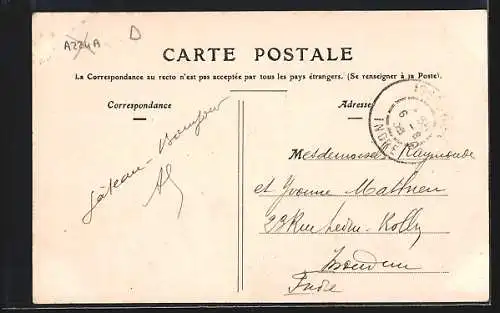 A224A
D
CARTE POSTALE
La Correspondance au recto n'est pas acceptée par tous les pays étrangers. (Se renseigner à la Poste).
Correspondance
Adresse
INDRE
Gâteau - Bonjour
Mesdemoiselles Raymonde
et Yvonne
23 Rue Ledru-Rollin
Issoudun
Indre